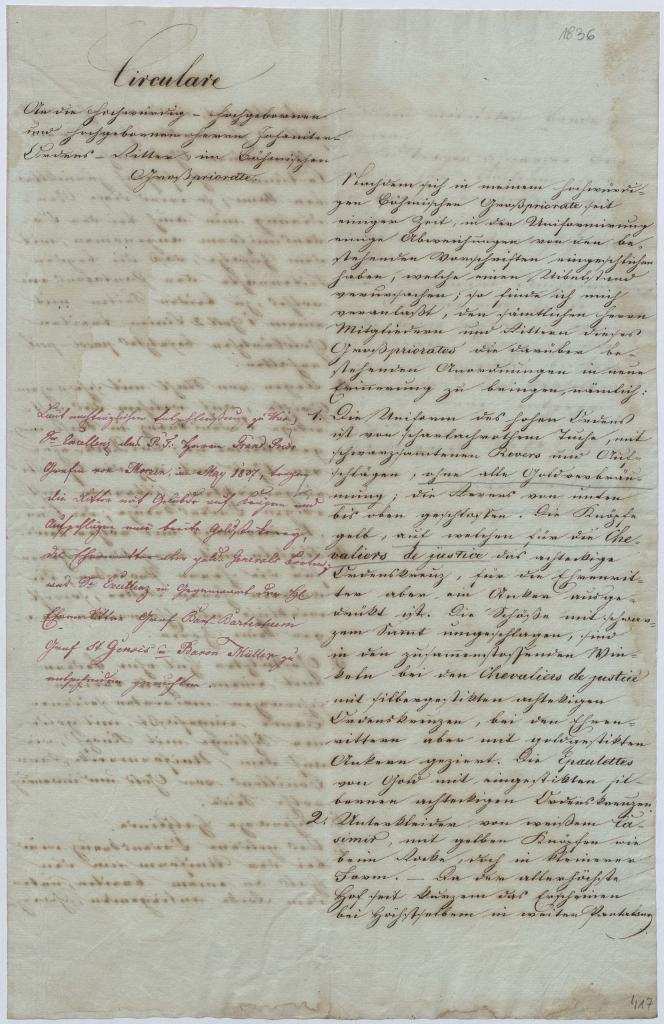 1836
Circulare
An die Hochwürdig-Hochgebornen
und Hochgebornen Herrn Johaniter-
Ordens-Ritter im Böhmischen
Großpriorate.
Nachdem sich in meinem hochwürdi-
gen Böhmischen Großpriorate, seit
einiger Zeit, in der Uniformirung
einige Abweichungen von den be-
stehenden Vorschriften eingeschlichen
haben, welche einen Uibelstand
verursachen; so finde ich mich
veranlaßt, den sämtlichen Herrn
Mitgliedern und Rittern dieses
Großpriorates die darüber be-
stehenden Anordnungen in neue
Erinnerung zu bringen, nämlich:
1. Die Uniform des hohen Ordens
ist von scharlachrothem Tuche, mit
schwarzsamtenen Revers und Auf-
schlägen, ohne alle Goldverbrä-
mung; die Revers von unten
bis oben geschlossen. Die Knöpfe
gelb, auf welchen für die Che-
valiers de justice das achteckige
Ordenskreuz, für die Ehrenrit-
ter aber ein Anker ausge-
drükt ist. Die Schöße mit schwar-
zem Samt umgeschlagen, sind
in den zusammenstossenden Win-
keln bei den Chevaliers de justice
mit silbergestikten achtekigen
Ordenskreuzen, bei den Ehren-
rittern aber mit goldgestikten
Ankern geziert. Die Epaulettes
von Gold mit eingestikten sil-
bernen achteckigen Ordenskreuzen.
2. Unterkleider von weißem Ca-
simir, mit gelben Knöpfen wie
beim Rocke, doch in kleinerer
Form. — Da der allerhöchste
Hof seit kurzem das Erscheinen
bei Höchstselbem in weiten Pantalons
Laut nachträglicher zu Wien
Sr Excellenz des P.T. Herrn
Grafen von Morzin, im May 1837, tragen
die Ritter mit Gelübde auf Kragen und
Aufschlägen eine breite Goldstickerey,
die Ehrenritter aber goldene Generals Borten,
was Sr Excellenz in Gegenwart der HH
Ehren Ritter Graf Karl
Graf St Genois Baron Müller zu
entscheiden geruhten.
417